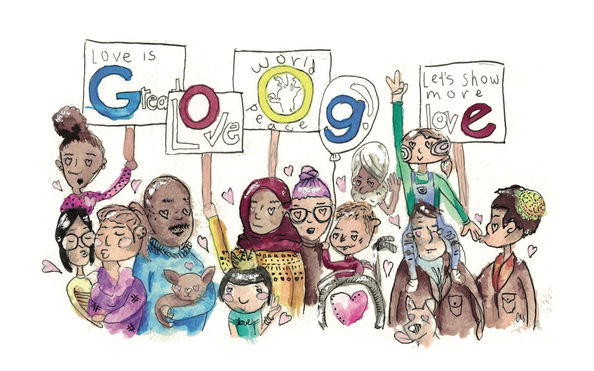 Love is
Great
LOve
world
peace
g
Let's show
more
love
love